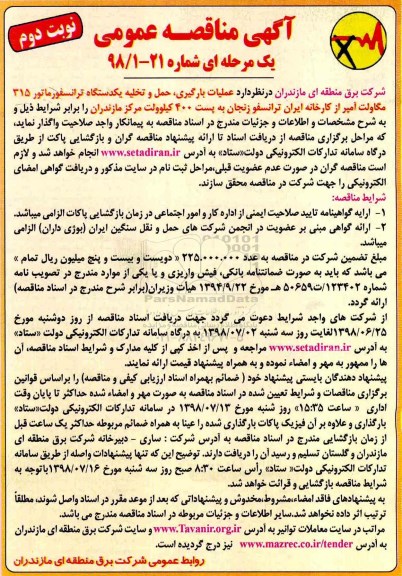 نوبت دوم
آگهی مناقصه عمومی
یک مرحله ای شماره ۲۱-۹۸/۱
شرکت برق منطقه ای مازندران درنظردارد عملیات بارگیری، حمل و تخلیه یکدستگاه ترانسفورماتور ۳۱۵
مگاولت آمپر از کارخانه ایران ترانسفو زنجان به پست ۴۰۰ کیلوولت مرکز مازندران را برابر شرایط ذیل و
به شرح مشخصات و اطلاعات و جزئیات مندرج در اسناد مناقصه به پیمانکار واجد صلاحیت واگذار نماید،
که مراحل برگزاری مناقصه از دریافت اسناد تا ارائه پیشنهاد مناقصه گران و بازگشایی پاکت از طریق
درگاه سامانه تدارکات الکترونیکی دولت«ستاد» به آدرس www.setadiran.ir انجام خواهد شد و لازم
است مناقصه گران در صورت عدم عضویت قبلی،مراحل ثبت نام در سایت مذکور و دریافت گواهی امضای
الکترونیکی را جهت شرکت در مناقصه محقق سازند.
شرایط مناقصه:
۱- ارایه گواهینامه تایید صلاحیت ایمنی از اداره کار و امور اجتماعی در زمان بازگشایی پاکات الزامی میباشد.
۲- ارائه گواهی مبنی بر عضویت در انجمن شرکت های حمل و نقل سنگین ایران (بوژی داران) الزامی
میباشد.
مبلغ تضمین شرکت در مناقصه به عدد ۲۲۵.۰۰۰.۰۰۰ « دویست و بیست و پنج میلیون ریال تمام »
می باشد که باید به صورت ضمانتنامه بانکی، فیش واریزی و یا یکی از موارد مندرج در تصویب نامه
شماره ۱۲۳۴۰۲/ت۵۰۶۵۹ هـ مورخ ۱۳۹۴/۹/۲۲ هیأت وزیران(برابر شرح مندرج در اسناد مناقصه)
ارائه گردد.
از شرکت های واجد شرایط دعوت می گردد جهت دریافت اسناد مناقصه از روز دوشنبه مورخ
۱۳۹۸/۰۶/۲۵لغایت روز سه شنبه ۱۳۹۸/۰۷/۰۲ به درگاه سامانه تدارکات الکترونیکی دولت «ستاد»
به آدرس www.setadiran.ir مراجعه و پس از اخذ کپی از کلیه مدارک و شرایط اسناد مناقصه، آن
ها را ممهور به مهر و امضاء نموده و به همراه پیشنهاد قیمت ارائه نمایند.
پیشنهاد دهندگان بایستی پیشنهاد خود ( ضمائم بهمراه اسناد ارزیابی کیفی و مناقصه) را براساس قوانین
برگزاری مناقصات و شرایط تعیین شده در اسناد مناقصه به صورت مهر و امضاء شده حداکثر تا پایان وقت
اداری « ساعت ۱۵:۳۵» روز شنبه مورخ ۱۳۹۸/۰۷/۱۳ در سامانه تدارکات الکترونیکی دولت«ستاد»
بارگذاری و علاوه بر آن فیزیک پاکات بارگذاری شده را عینا به همراه ضمائم مربوطه حداکثر یک ساعت قبل
از زمان بازگشایی مندرج در اسناد مناقصه به آدرس شرکت : ساری - دبیرخانه شرکت برق منطقه ای
مازندران و گلستان تسلیم و رسید آن را دریافت دارند. توضیح این که تنها پیشنهادات واصله از طریق سامانه
تدارکات الکترونیکی دولت« ستاد» رأس ساعت ۸:۳۰ صبح روز سه شنبه مورخ ۱۳۹۸/۰۷/۱۶باتوجه به
شرایط مناقصه بازگشایی و قرائت خواهد شد.
به پیشنهادهای فاقد امضاء،مشروط،مخدوش و پیشنهاداتی که بعد از موعد مقرر در اسناد واصل شوند، مطلقاً
ترتیب اثر داده نخواهد شد.سایر اطلاعات و جزئیات مربوطه در اسناد مناقصه مندرج می باشد.
مراتب در سایت معاملات توانیر به آدرس www.Tavanir.org.ir و سایت شرکت برق منطقه ای مازندران
به آدرس www.mazrec.co.ir/tender نیز درج گردیده است.
روابط عمومی شرکت برق منطقه ای مازندران